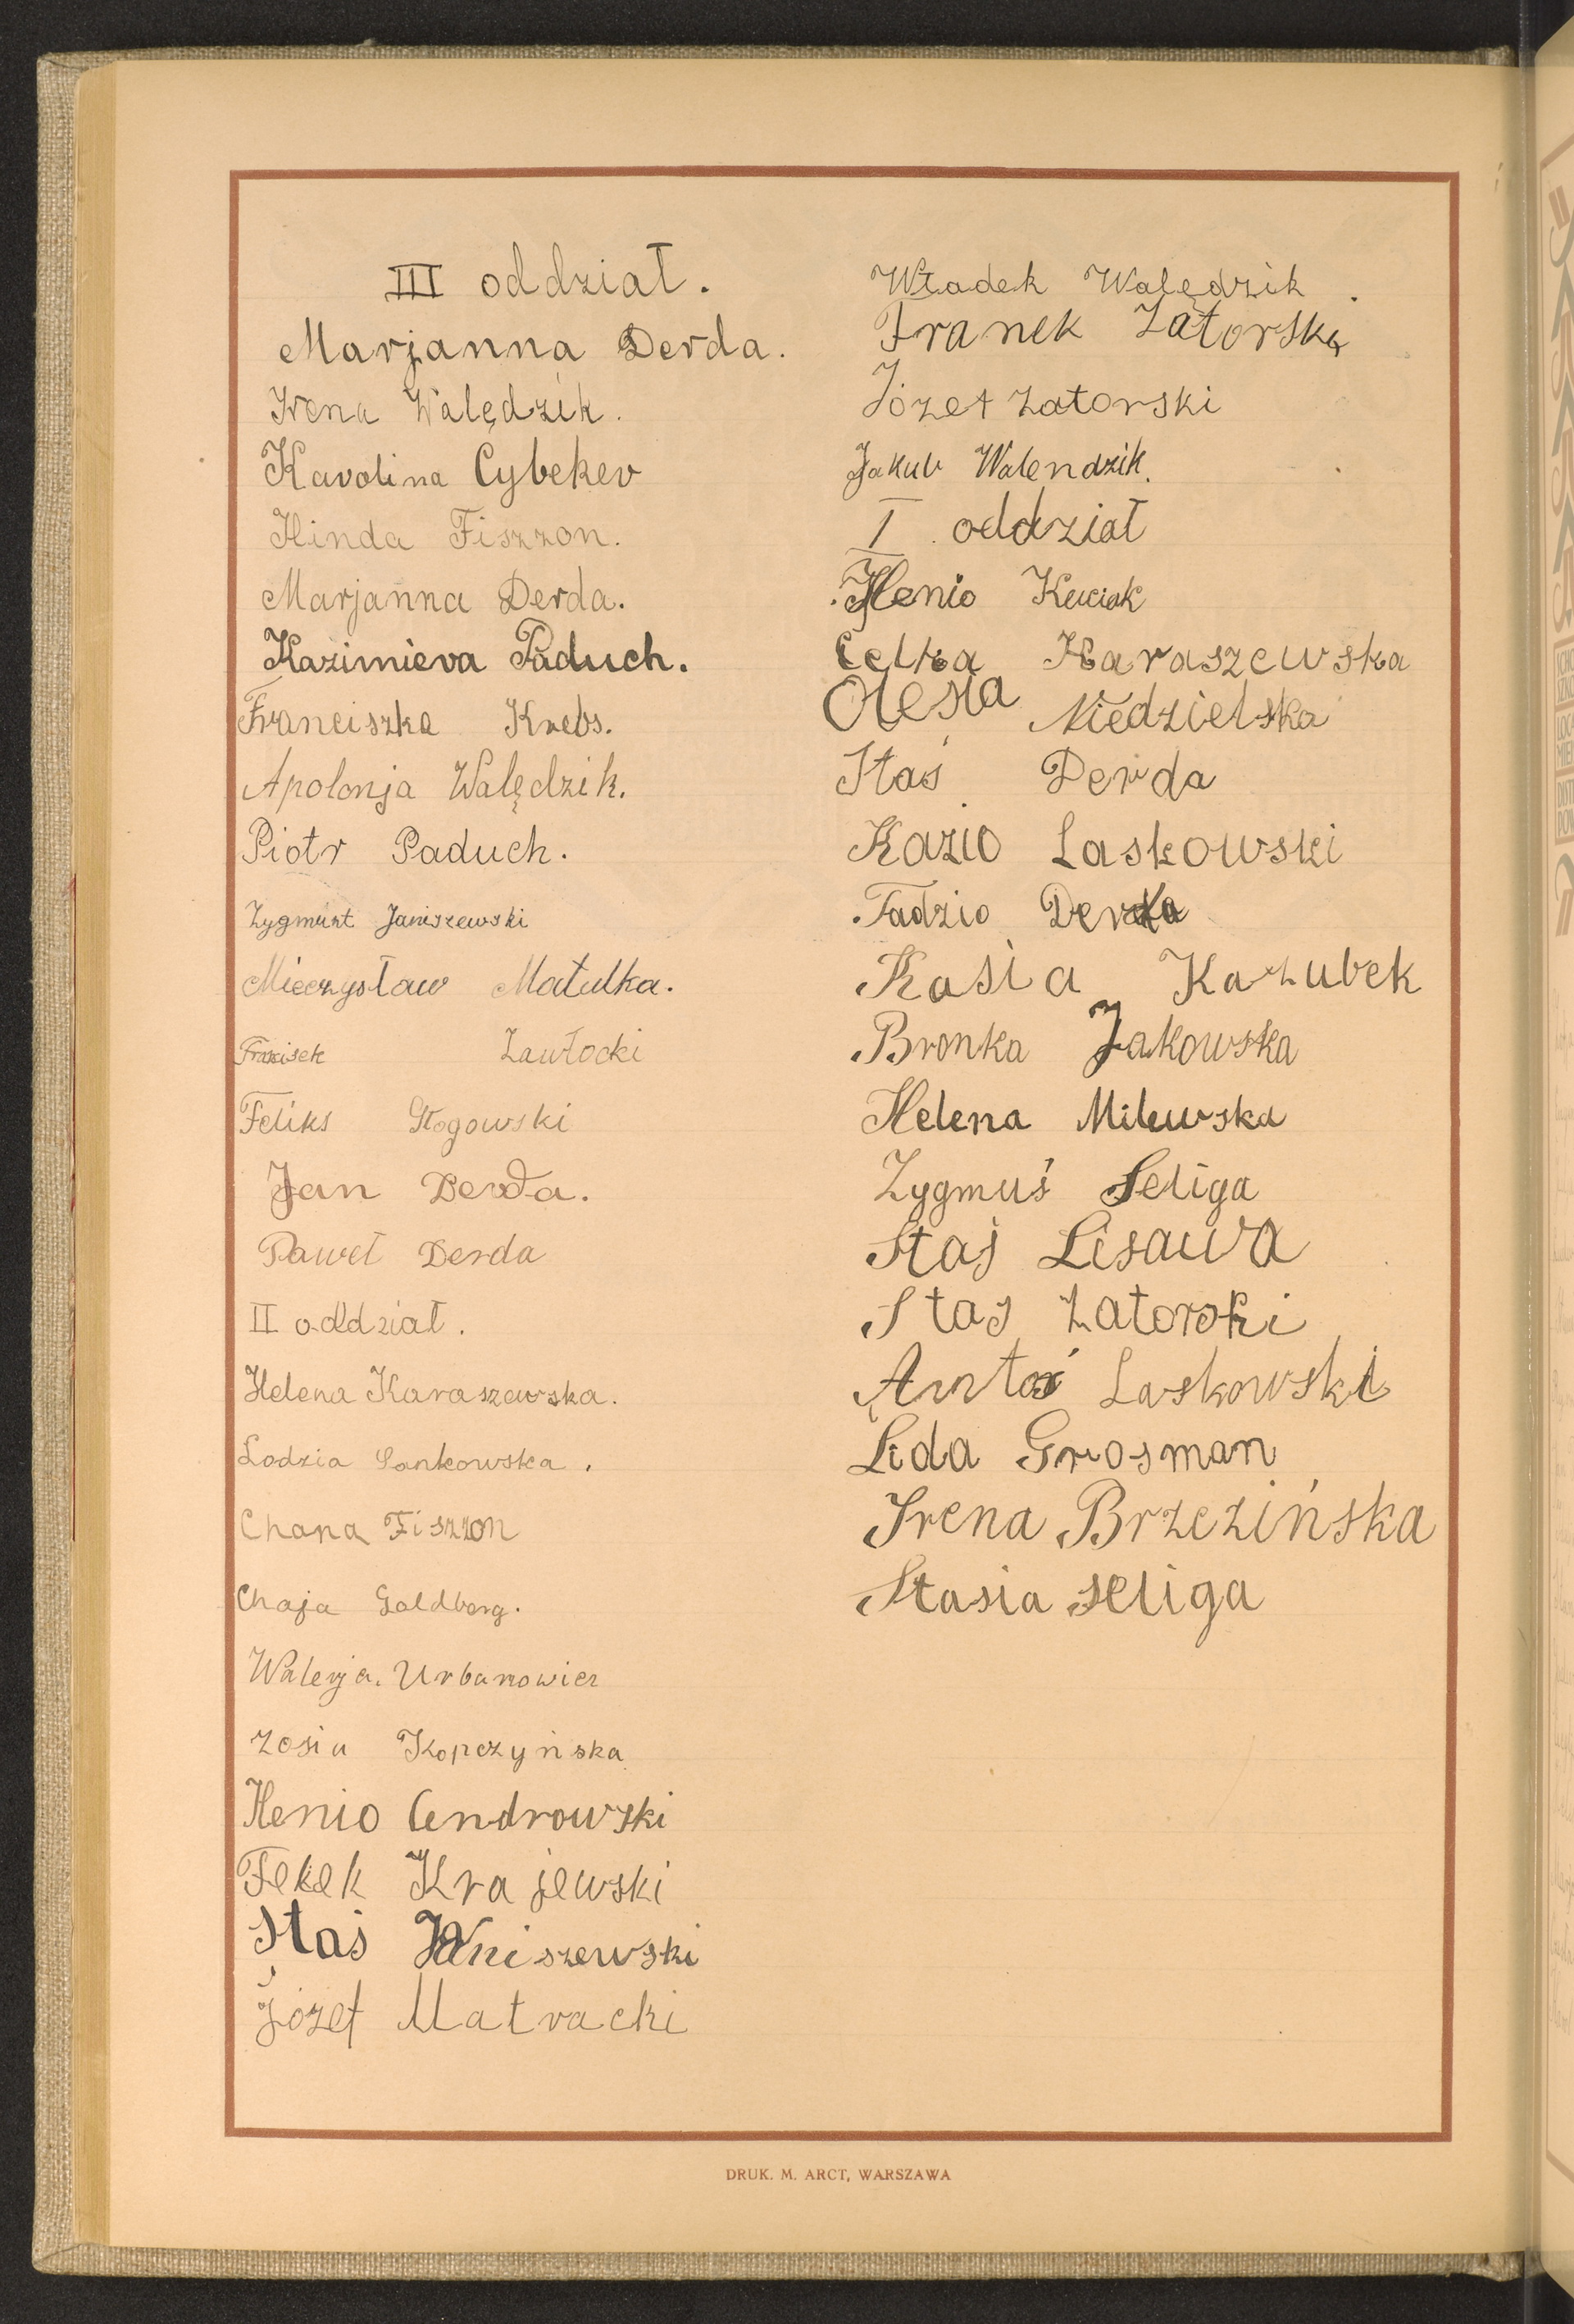 III oddział.
Marjanna Derda.
Irena Walędzik.
Karolina Cybeker
Hinda Fiszzon.
Marjanna Derda.
Kazimiera Paduch.
Franciszka Krebs.
Apolonja Walędzik.
Piotr Paduch.
Zygmunt Janiszewski
Mieczysław Matulka.
Zawłocki
Feliks Głogowski
Jan Derda.
Paweł Derda
II oddział.
Helena Karaszewska.
Lodzia Sankowska.
Chana Fiszzon
Chaja Goldberg.
Walerja. Urbanowicz
Zosia Kopczyńska
Henio Cendrowski
Felek Krajewski
Staś Janiszewski
Józef Matracki
Władek Walędzik.
Franek Zatorski
Józef Zatorski
Jakub Walendzik.
I oddział
Henio Kuciak
Celka Karaszewska
Olesia Niedzielska
Staś Derda
Kazio Laskowski
Tadzio Derda
Kasia Kazubek
Bronka Jakowska
Helena Milewska
Zygmuś Seliga
Staś Lisawa
Staś Zatorski
Antoś Laskowski
Lida Grosman
Irena Brzezińska
Stasia Seliga
DRUK. M. ARCT, WARSZAWA